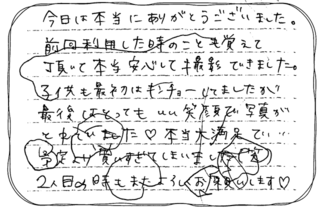 今日は本当にありがとうございました。
前回利用した時のことも覚えて
頂いて本当安心して撮影できました。
子供も最初はキンチョーしてましたが
最後はとってもいい笑顔で写真が
とれました♡ 本当大満足でい…
予定より買いすぎてしまいました(笑)
2人目の時もまたよろしくお願いします♡